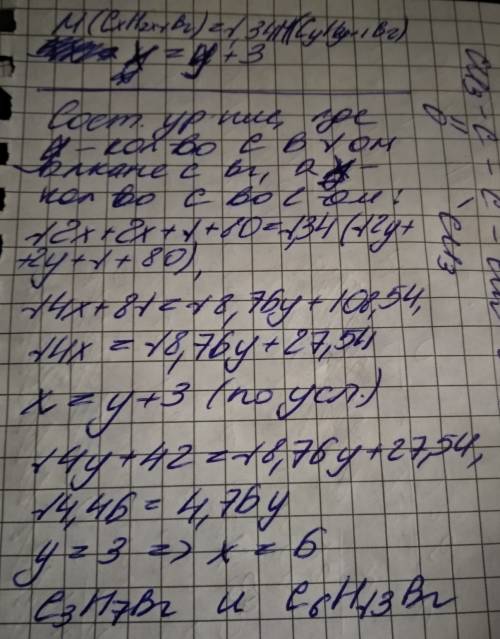 M(CxH2x+1Br)=1,34M(CyH2y+1Br)
x = y + 3
Сост. ур-ние, где
y - кол-во C в 1 ом
алкане с Br, а x -
кол во C во 2 ом:
12x+2x+1+80=1,34(12y+
+2y+1+80),
14x+81=18,76y+108,54,
14x=18,76y+27,54
x = y+3 (по усл.)
14y+42=18,76y+27,54,
14,46=4,76y
y=3 => x=6
C3H7Br и C6H13Br
CH3 - C - C -
CH3